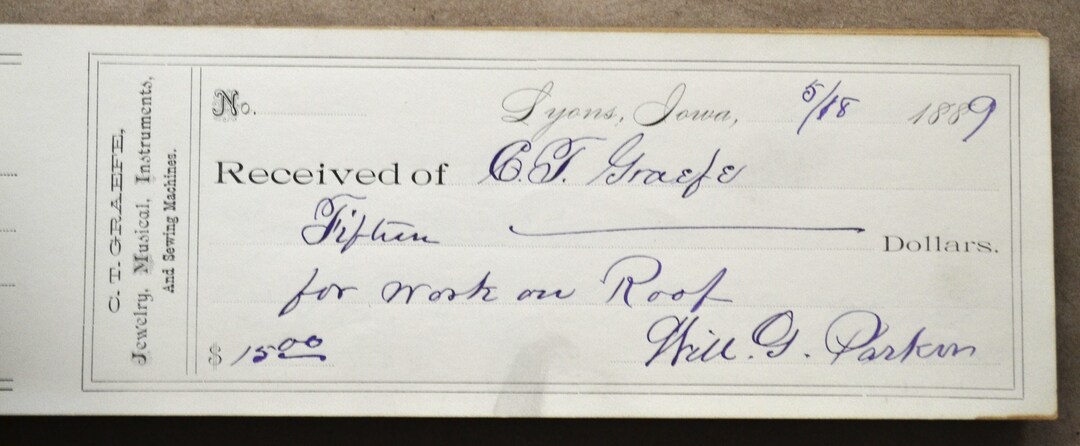 C. T. GRAEFE,
Jewelry, Musical, Instruments,
And Sewing Machines.
No.
Lyons, Iowa, 5/18 1889
Received of C. T. Graefe
Fifteen Dollars.
for work on Roof
$ 15.00
Will. G. Parkin